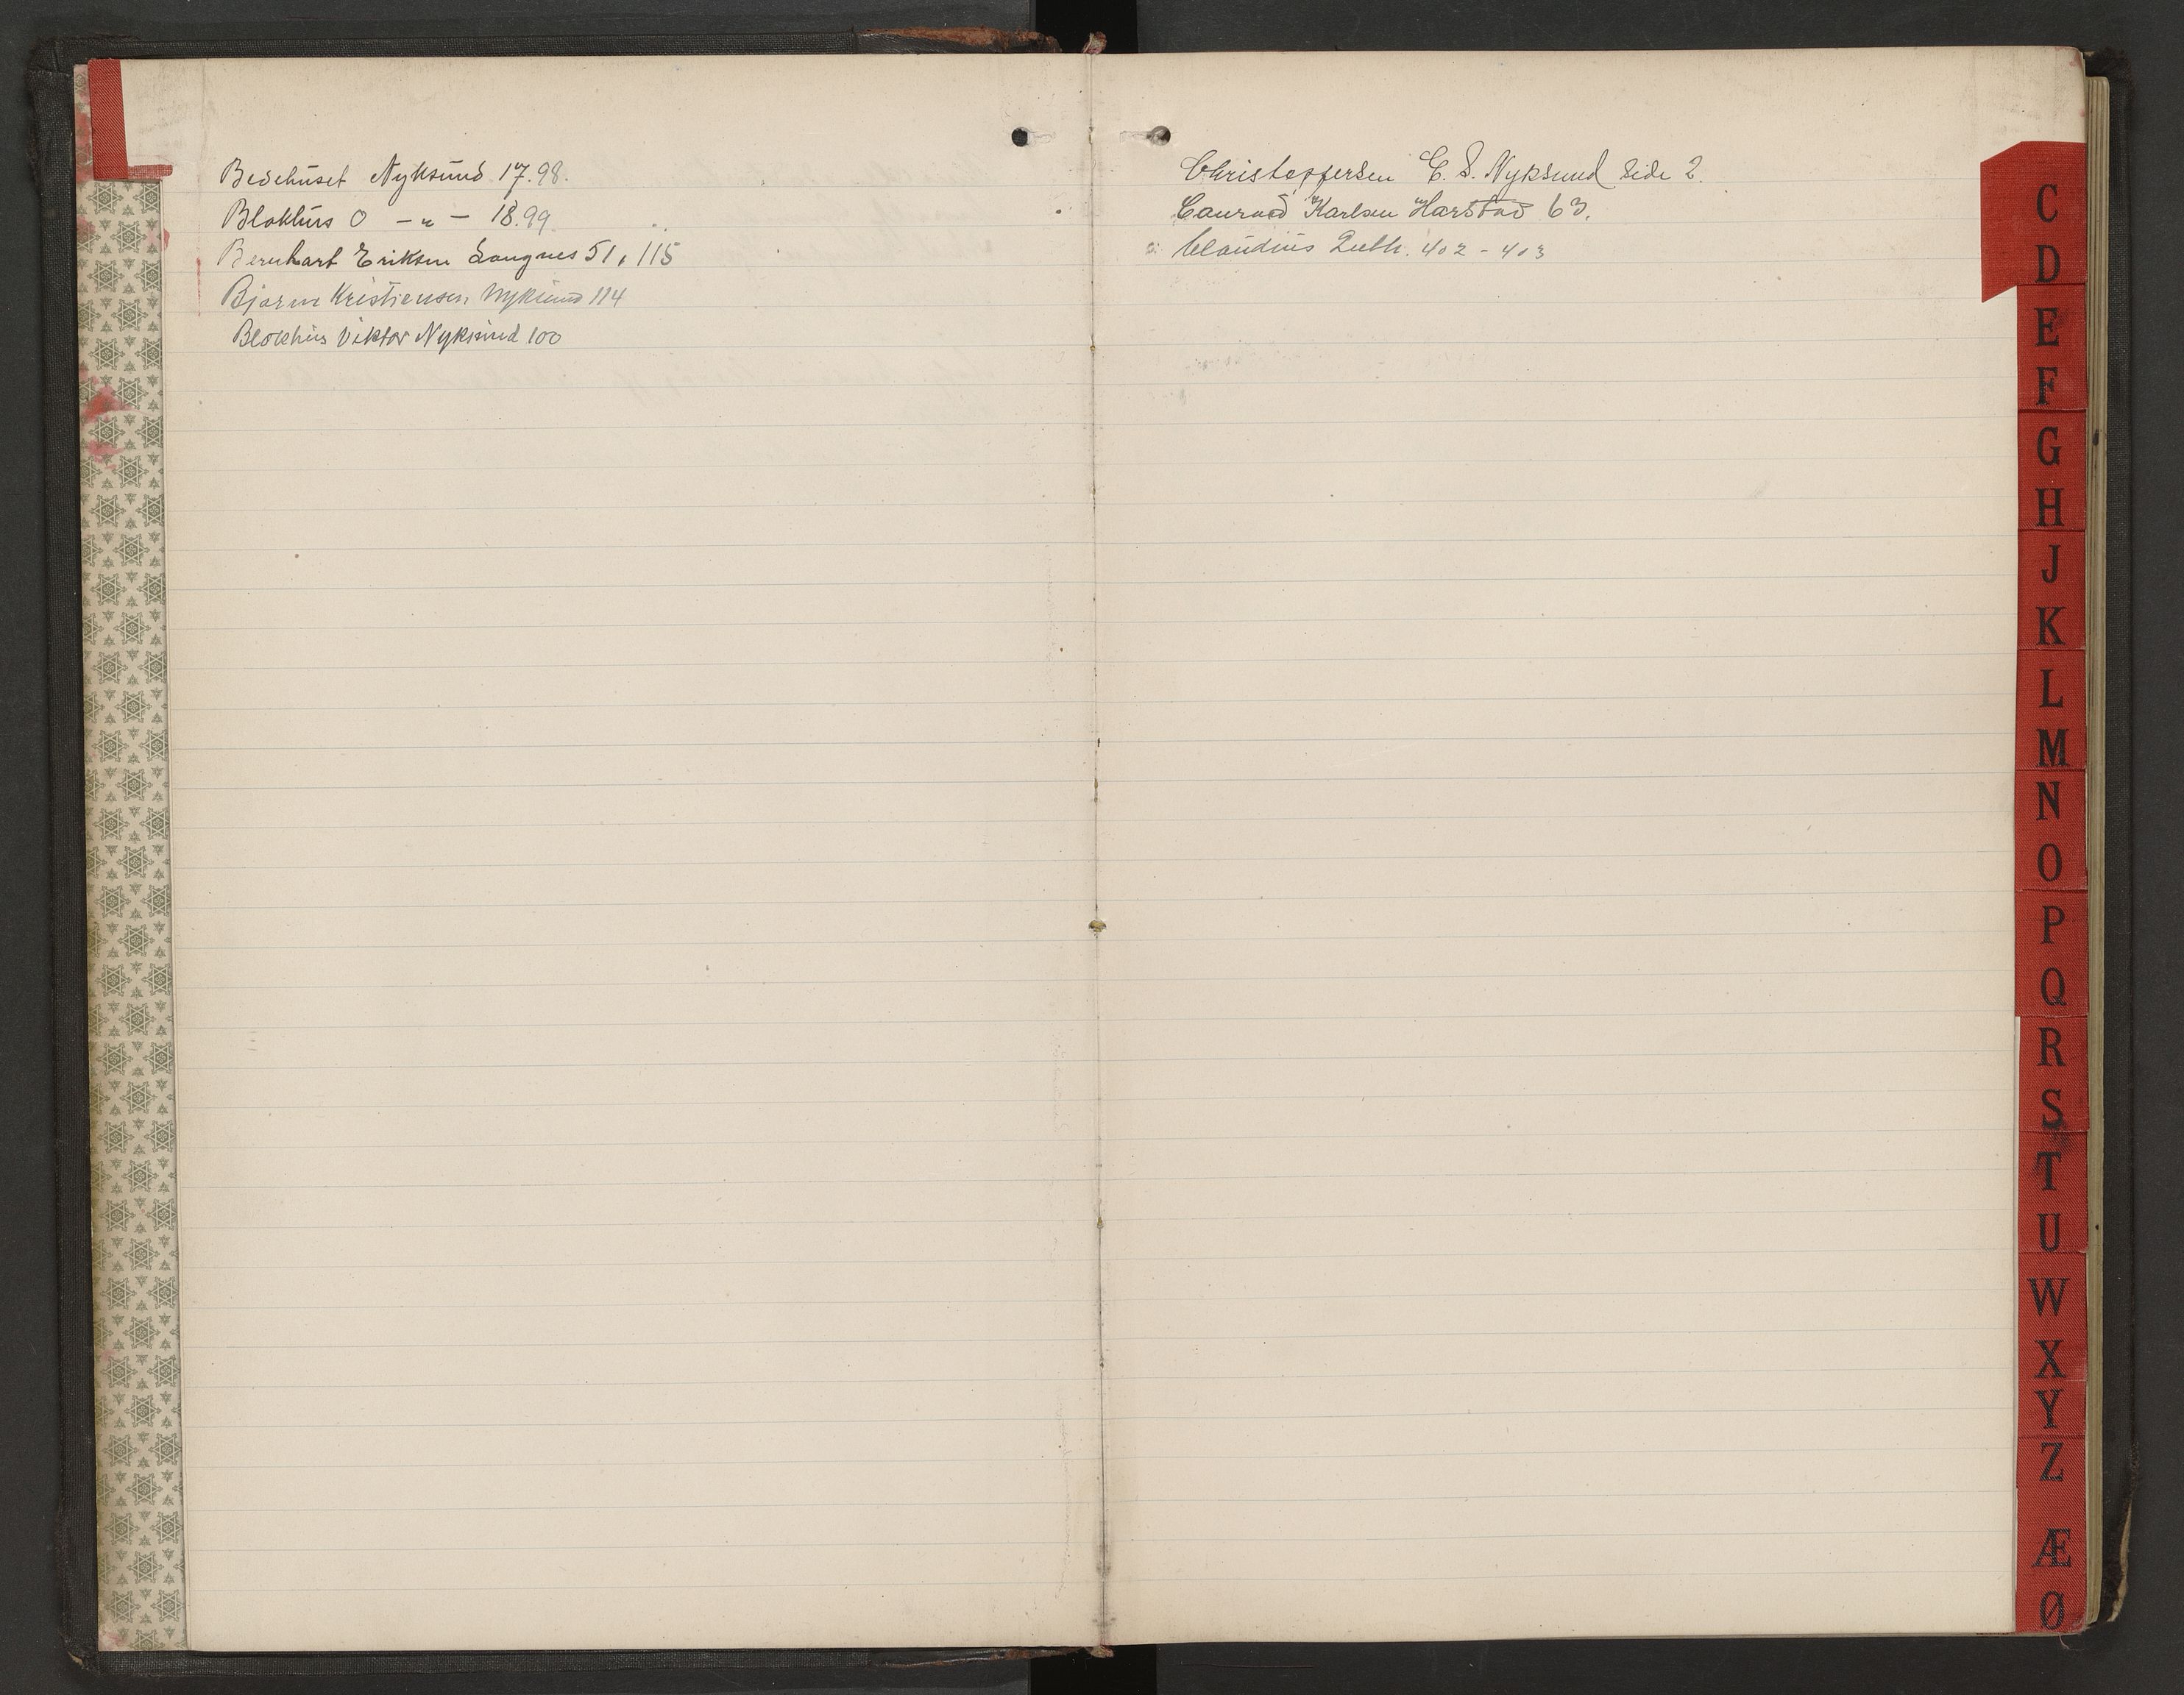 Bedehuset Nyksund 17.98.
Blokhus O - " - 18.99.
Bernhart Eriksen Langnes 51, 115
Bjarne Kristiensen Nyksund 114
Blokhus Viktor Nyksund 100
Christoffersen C. S. Nyksund Side 2.
Conrad Karlsen Harstad 63.
Claudius 402 - 403
C
D
E
F
G
H
J
K
L
M
N
O
P
Q
R
S
T
U
W
X
Y
Z
Æ
Ø